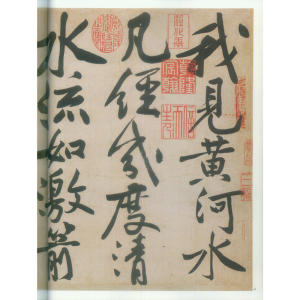 我見黃河水
凡經幾度清
水流如激箭